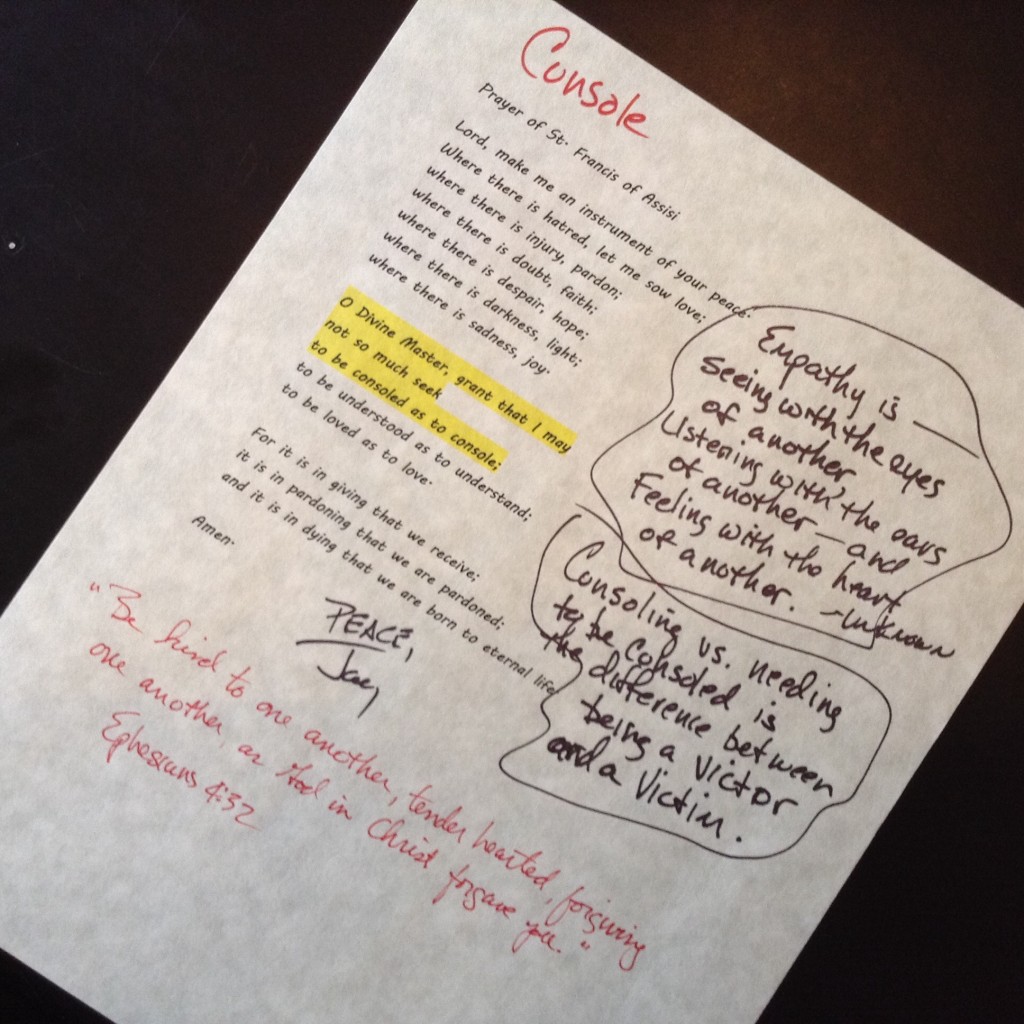 Console
Prayer of St. Francis of Assisi
Lord, make me an instrument of your peace.
Where there is hatred, let me sow love;
where there is injury, pardon;
where there is doubt, faith;
where there is despair, hope;
where there is darkness, light;
where there is sadness, joy.
O Divine Master, grant that I may
not so much seek
to be consoled as to console;
to be understood as to understand;
to be loved as to love.
For it is in giving that we receive;
it is in pardoning that we are pardoned;
and it is in dying that we are born to eternal life
Amen.
Empathy is —
seeing with the eyes
of another
Listening with the ears
of another — and
Feeling with the heart
of another. ~Unknown
Consoling vs. needing
to be consoled is
the difference between
being a Victor
and a Victim.
PEACE,
Jay
"Be kind to one another, tender hearted, forgiving
one another, as God in Christ forgave you."
Ephesians 4:32